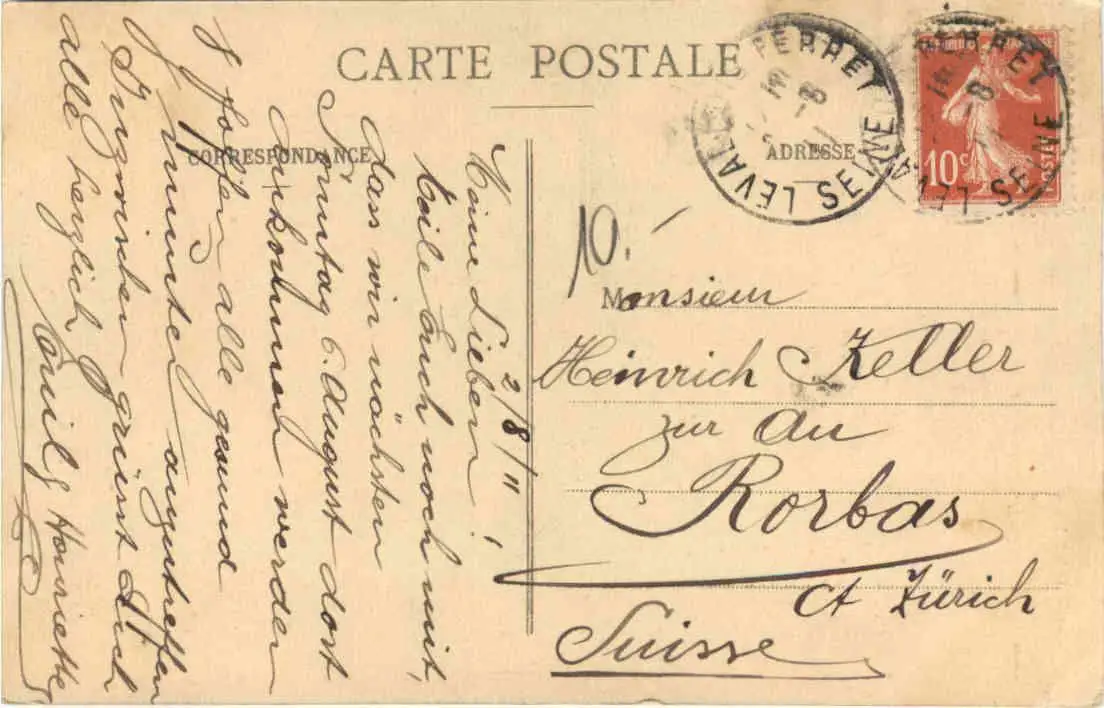 CARTE POSTALE
CORRESPONDANCE
ADRESSE
2/8/11
Meine Lieben!
teile Euch noch mit,
dass wir nächsten
Sonntag 6. August dort
ankommen werden
& hoffen alle gesund
& munter anzutreffen
Inzwischen grüsst Euch
alle herzlich
Emil & Henriette
10.-
Monsieur
Heinrich Keller
zur Au
Rorbas
Ct Zürich
Suisse
PERRET
LEVAL
SEINE
8
10c
POSTES